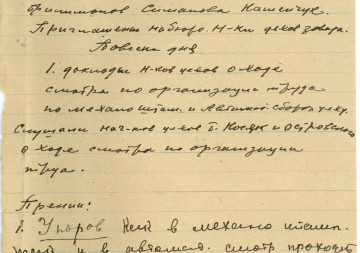 Филимонов Симакова Кашейчук.
Приглашены на бюро Н-ки цехов завода.
Повестка дня
1. доклады Н-ков цехов о ходе
смотра по организации труда
по механо штам. и Автомат. сборов. цеху.
Слушали нач-ков цехов т. Косяк и Островского
о ходе смотра по организации
труа.
Прения:
1. Упоров в механо штамп-
и в автомат. смотр проходит